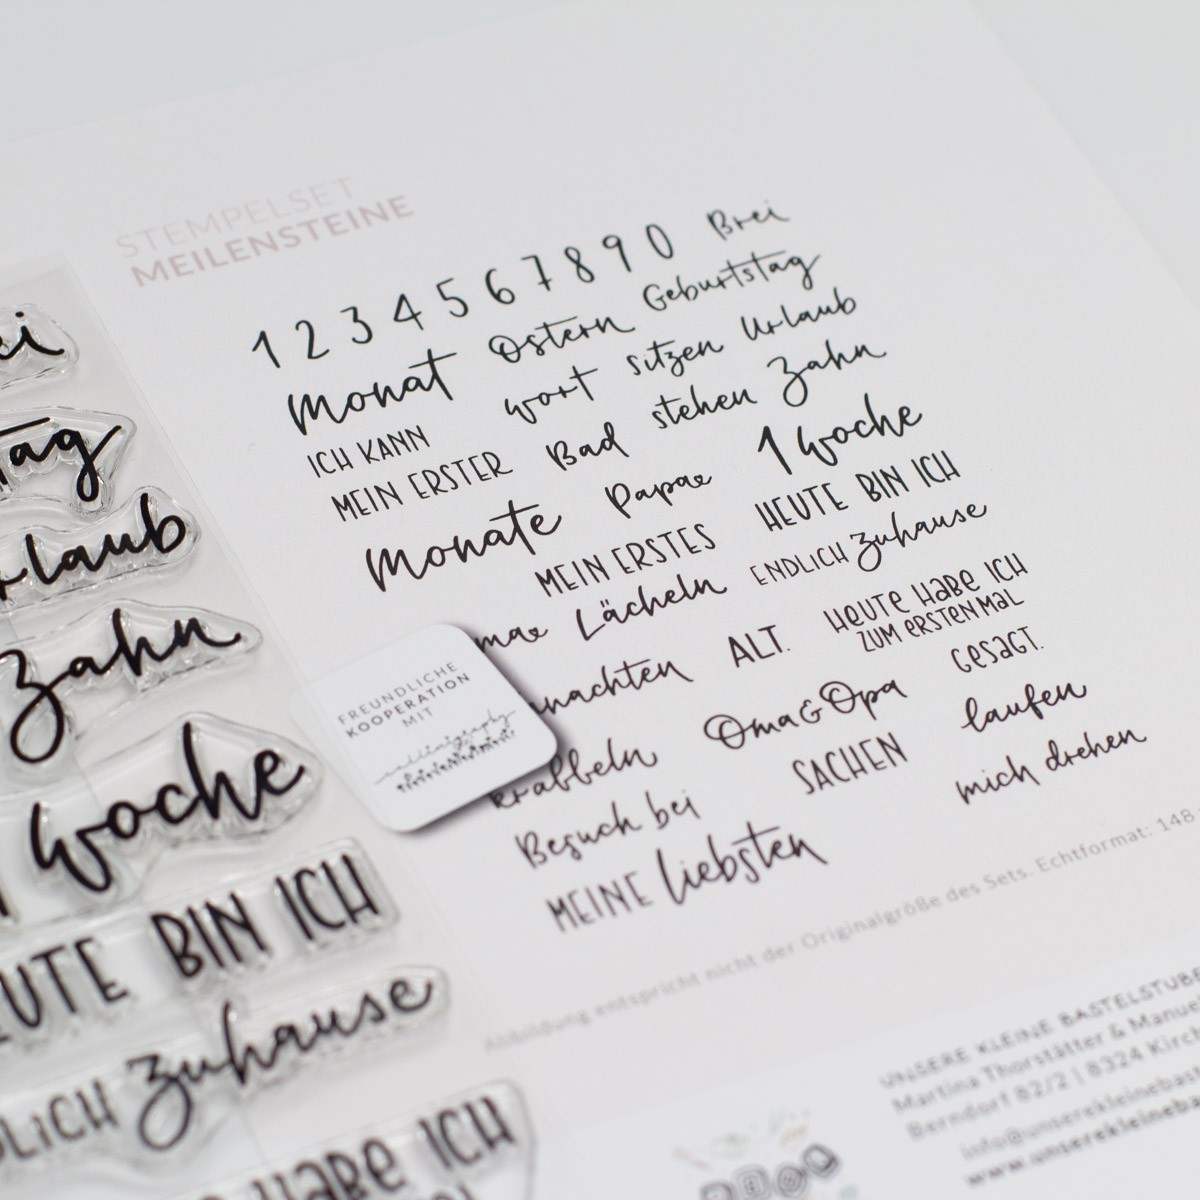 STEMPELSET
MEILENSTEINE
1 2 3 4 5 6 7 8 9 0 Brei
Monat Ostern Geburtstag
ICH KANN wort sitzen Urlaub
MEIN ERSTER Bad stehen Zahn
Monate Papa 1 Woche
MEIN ERSTES HEUTE BIN ICH
Lächeln ENDLICH zuhause
ALT. HEUTE HABE ICH
ZUM ERSTEN MAL
krabbeln Oma & Opa GESAGT.
Besuch bei SACHEN laufen
MEINE liebsten mich drehen
FREUNDLICHE
KOOPERATION
MIT
Abbildung entspricht nicht der Originalgröße des Sets. Echtformat: 148
UNSERE KLEINE BASTELSTUBE
Martina Thorstätter & Manue
Berndorf 82/2 | 8324 Kirch
info@unserekleinebas
www.unserekleineba
ei
tag
rlaub
Zahn
Woche
EUTE BIN ICH
DLICH zuhause
HABE ICH